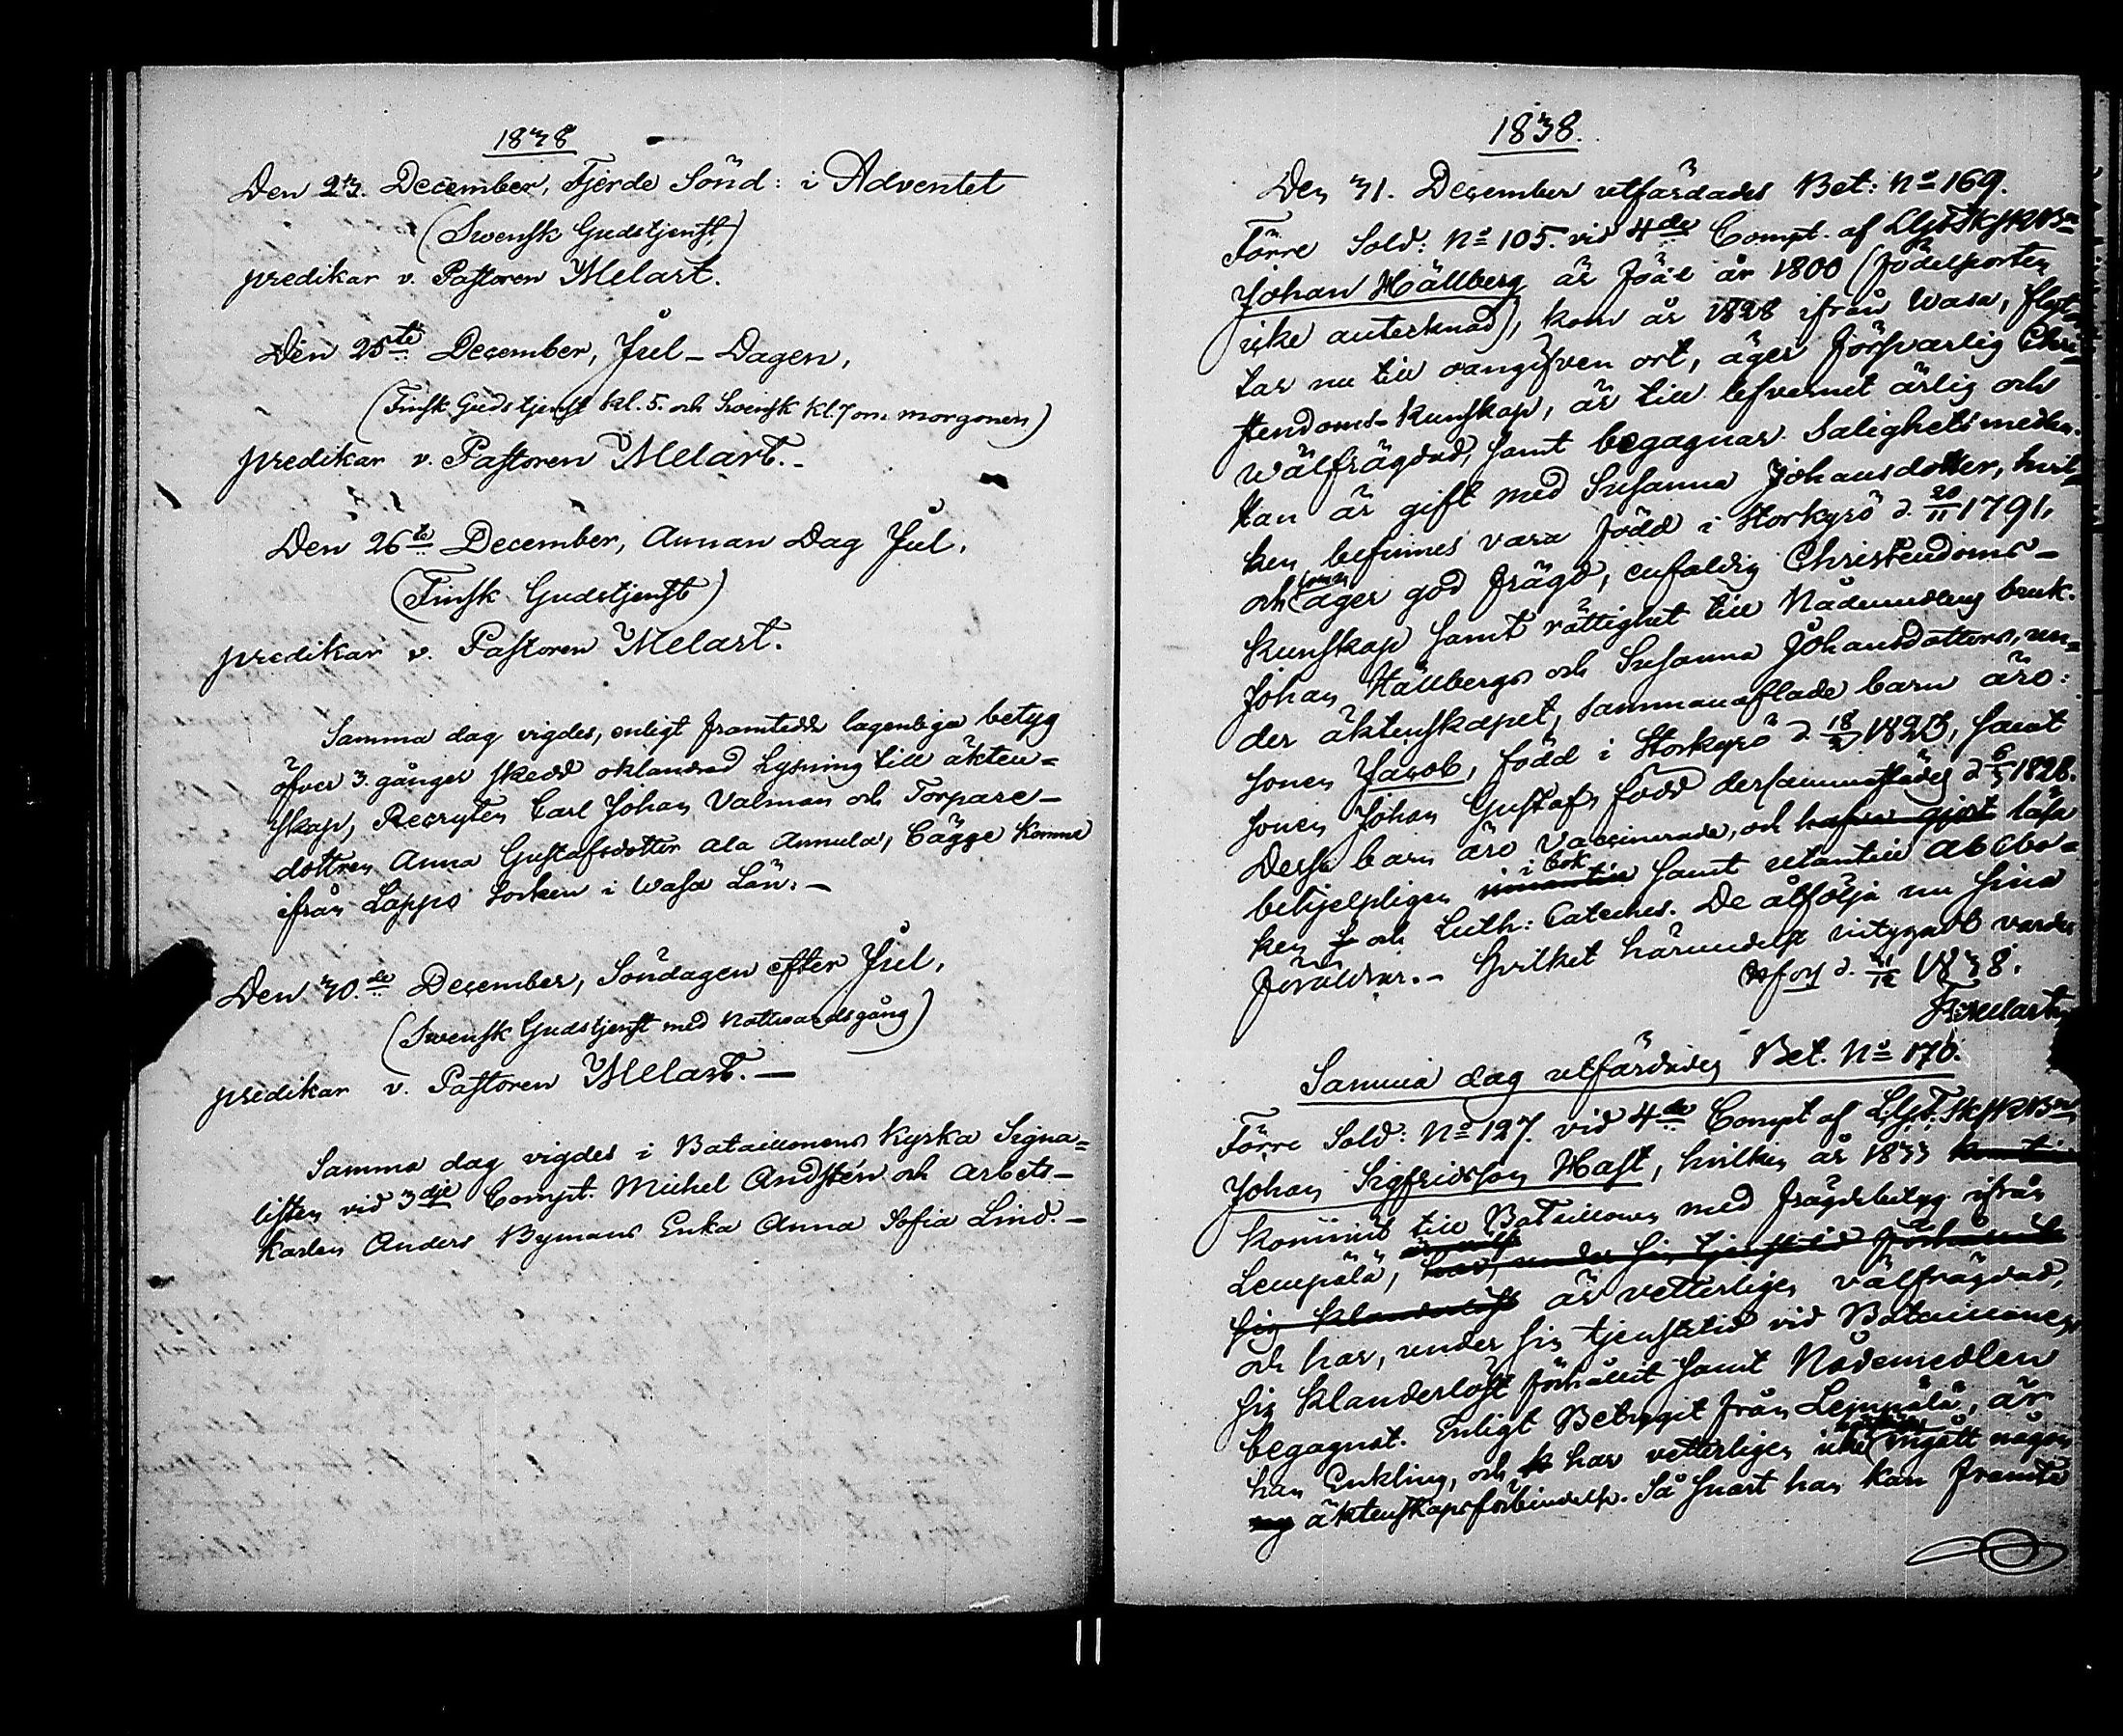 1838
Den 23. December, Fjerde Sönd: i Adventet
(Swensk Gudstjenst)
predikar v. Pastoren Melart.
Den 25te December, Jul-Dagen,
(Finsk Gudstjenst kl. 5. och Swensk kl. 7 om morgonen)
predikar v. Pastoren Melart.-
Den 26te December, Annan Dag Jul,
(Finsk Gudstjenst)
predikar v. Pastoren Melart.
Samma dag vigdes, enligt framtedde lagenliga betyg
öfver 3. gånger skedd oklandrad Lysning till äkten=
skap, Recryten Carl Johan Valman och Torpare-
dottren Anna Gustafsdotter ala Annula, bägge komne
ifrån Lappo Socken i Wasa Län.-
Den 30.de December, Söndagen efter Jul,
(Swensk Gudstjenst med Nattwardsgång)
predikar v. Pastoren Melart.-
Samma dag vigdes i Bataillonens Kyrka Signa=
listen vid 3dje Compt. Michel Andstén och Arbets-
karlen Anders Bymans Enka Anna Sofia Lind.-
1838.
Den 31. December utfärdades Bet: No 169.
Förre Sold: No 105. vid 4de Compt. af
Johan Hällberg är född år 1800 (födelseorten
icke antecknad), kom år 1828 ifrån Wasa, flyt-
tar nu till oangifven ort, äger försvarlig Chri-
stendoms-kunskap, är till lefvernet ärlig och
wälfrägdad, samt begagnar Salighetsmedlen.
Han är gift med Susanna Johansdotter, hvil-
ken befinnes vara född i Storkyrö d. 20/11 1791,
och som äger god frägd, enfaldig Christendoms-
kunskap samt rättighet till Nådemedlens bruk.
Johan Hällbergs och Susanna Johansdotters, un=
der äktenskapet, sammanaflade barn äro:
Sonen Jacob, född i Storkyrö d. 18/3 1825, samt
Sonen Johan Gustaf, född dersammastädes d. 6/5 1828.
Dessa barn äro Vaccinerade, och hafva gjort läsa
behjelpligen innantill i bok samt utantill abcbo-
ken och Luth: Cateches. De åtfölja nu sina
föräldrar.- Hvilket härmedelst intygadt varder
d. 31/12 1838.
Melart
Samma dag utfärdades Bet. No 170.
Förre Sold: No 127. vid 4de Compt af
Johan Sigfridsson Hast, hvilken år 1833
kommit till Bataillonen med frägdebetyg ifrån
Lempälä, har, under sin tjenstetid förhållit
sig klanderlöst är vetterligen välfrägdad,
och har, under sin tjenstetid vid Bataillonen,
sig klanderlöst förhållit samt Nådemedlen
begagnat. Enligt Betyget från Lempälä, är
han Enkling, och har vetterligen icke ingått någon
äktenskapsförbindelse. Så snart han kan framte